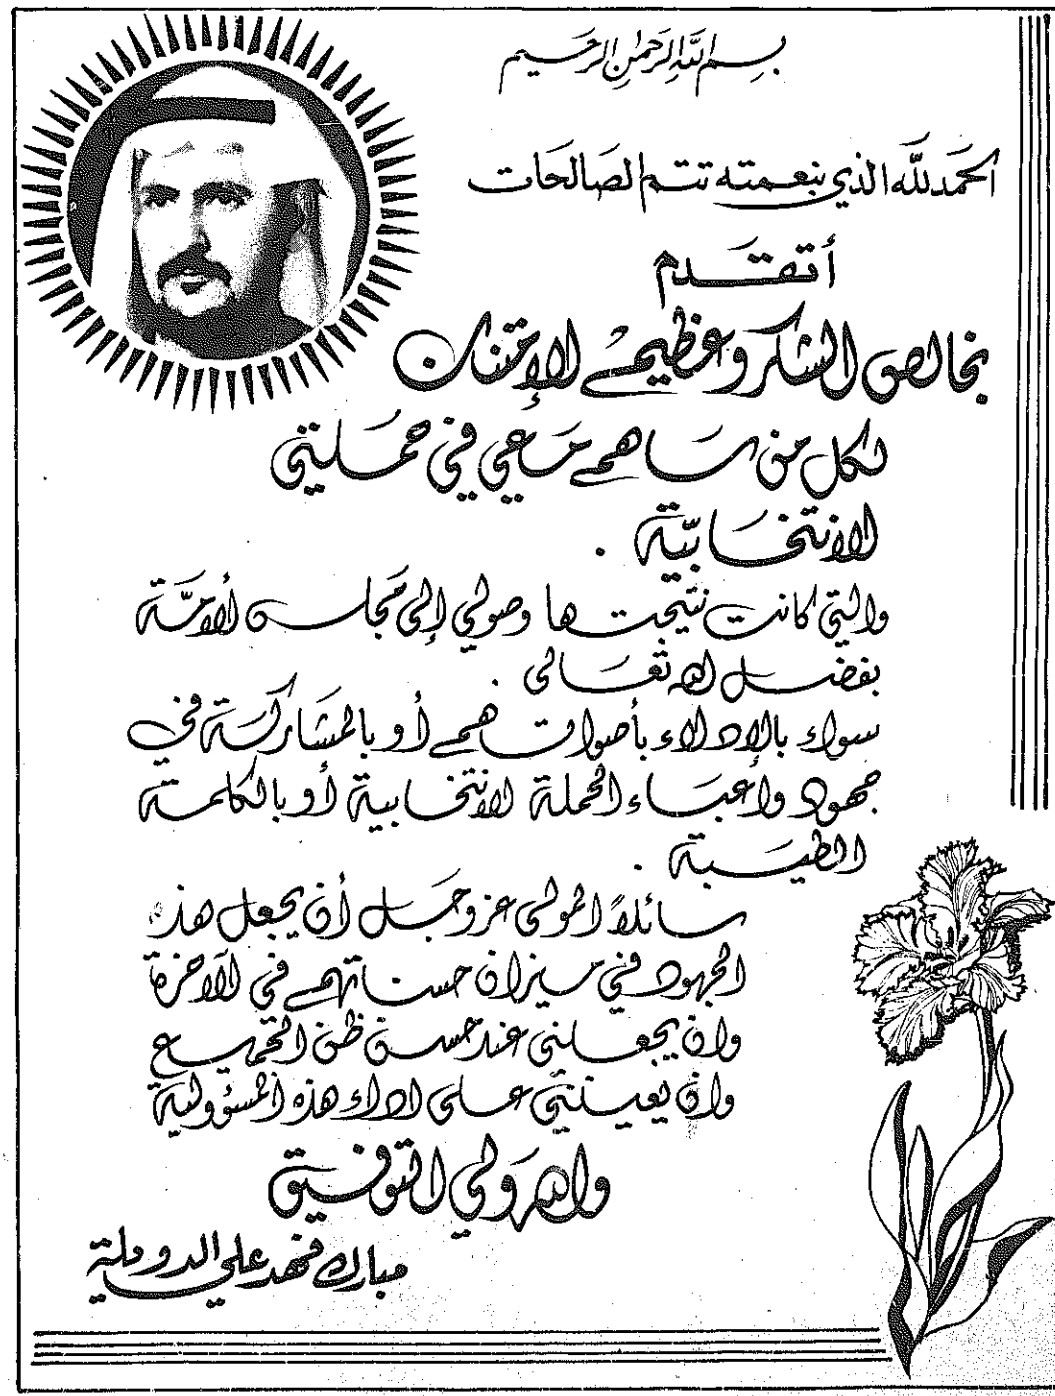 بسم الله الرحمن الرحيم
الحمد لله الذي بنعمته تتم الصالحات
أتقدم
بخالص الشكر وعظيم الإمتنان
لكل من ساهم معي في حملتي
الانتخابية .
والتي كانت نتيجتها وصولي إلى مجلس الأمة
بفضل الله تعالى .
سواء بالإدلاء بأصواتهم أو بالمشاركة في
جهود وأعباء الحملة الانتخابية أو بالكلمة
الطيبة .
سائلاً المولى عز وجل أن يجعل هذه
الجهود في ميزان حسناتهم في الآخرة
وان يجعلني عند حسن ظن الجميع
وان يعينني على اداء هذه المسؤولية
والله ولي التوفيق
مبارك فهد علي الدويلة